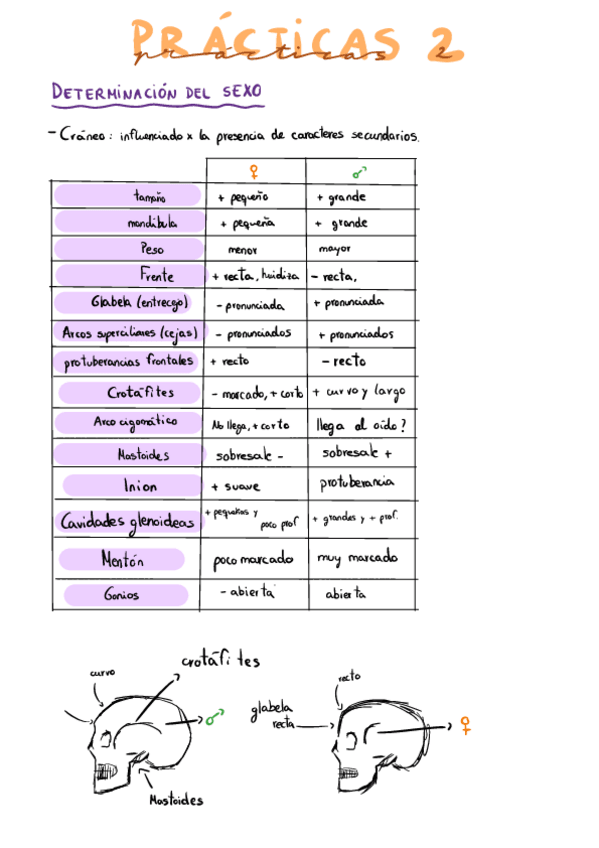 PRÁCTICAS 2
prácticas 2
DETERMINACIÓN DEL SEXO
- Cráneo: influenciado x la presencia de caracteres secundarios.
♀ ♂
tamaño + pequeño + grande
mandíbula + pequeña + grande
Peso menor mayor
Frente + recta, huidiza - recta,
Glabela (entrecejo) - pronunciada + pronunciada
Arcos superciliares (cejas) - pronunciados + pronunciados
protuberancias frontales + recto - recto
Crotáfites - marcado, + corto + curvo y largo
Arco cigomático No llega, + corto llega al oído?
Mastoides sobresale - sobresale +
Inion + suave protuberancia
Cavidades glenoideas + pequeñas y poco prof + grandes y + prof.
Mentón poco marcado muy marcado
Gonios - abierta abierta
crotáfites
curvo
♂
Mastoides
recto
glabela
recta
♀